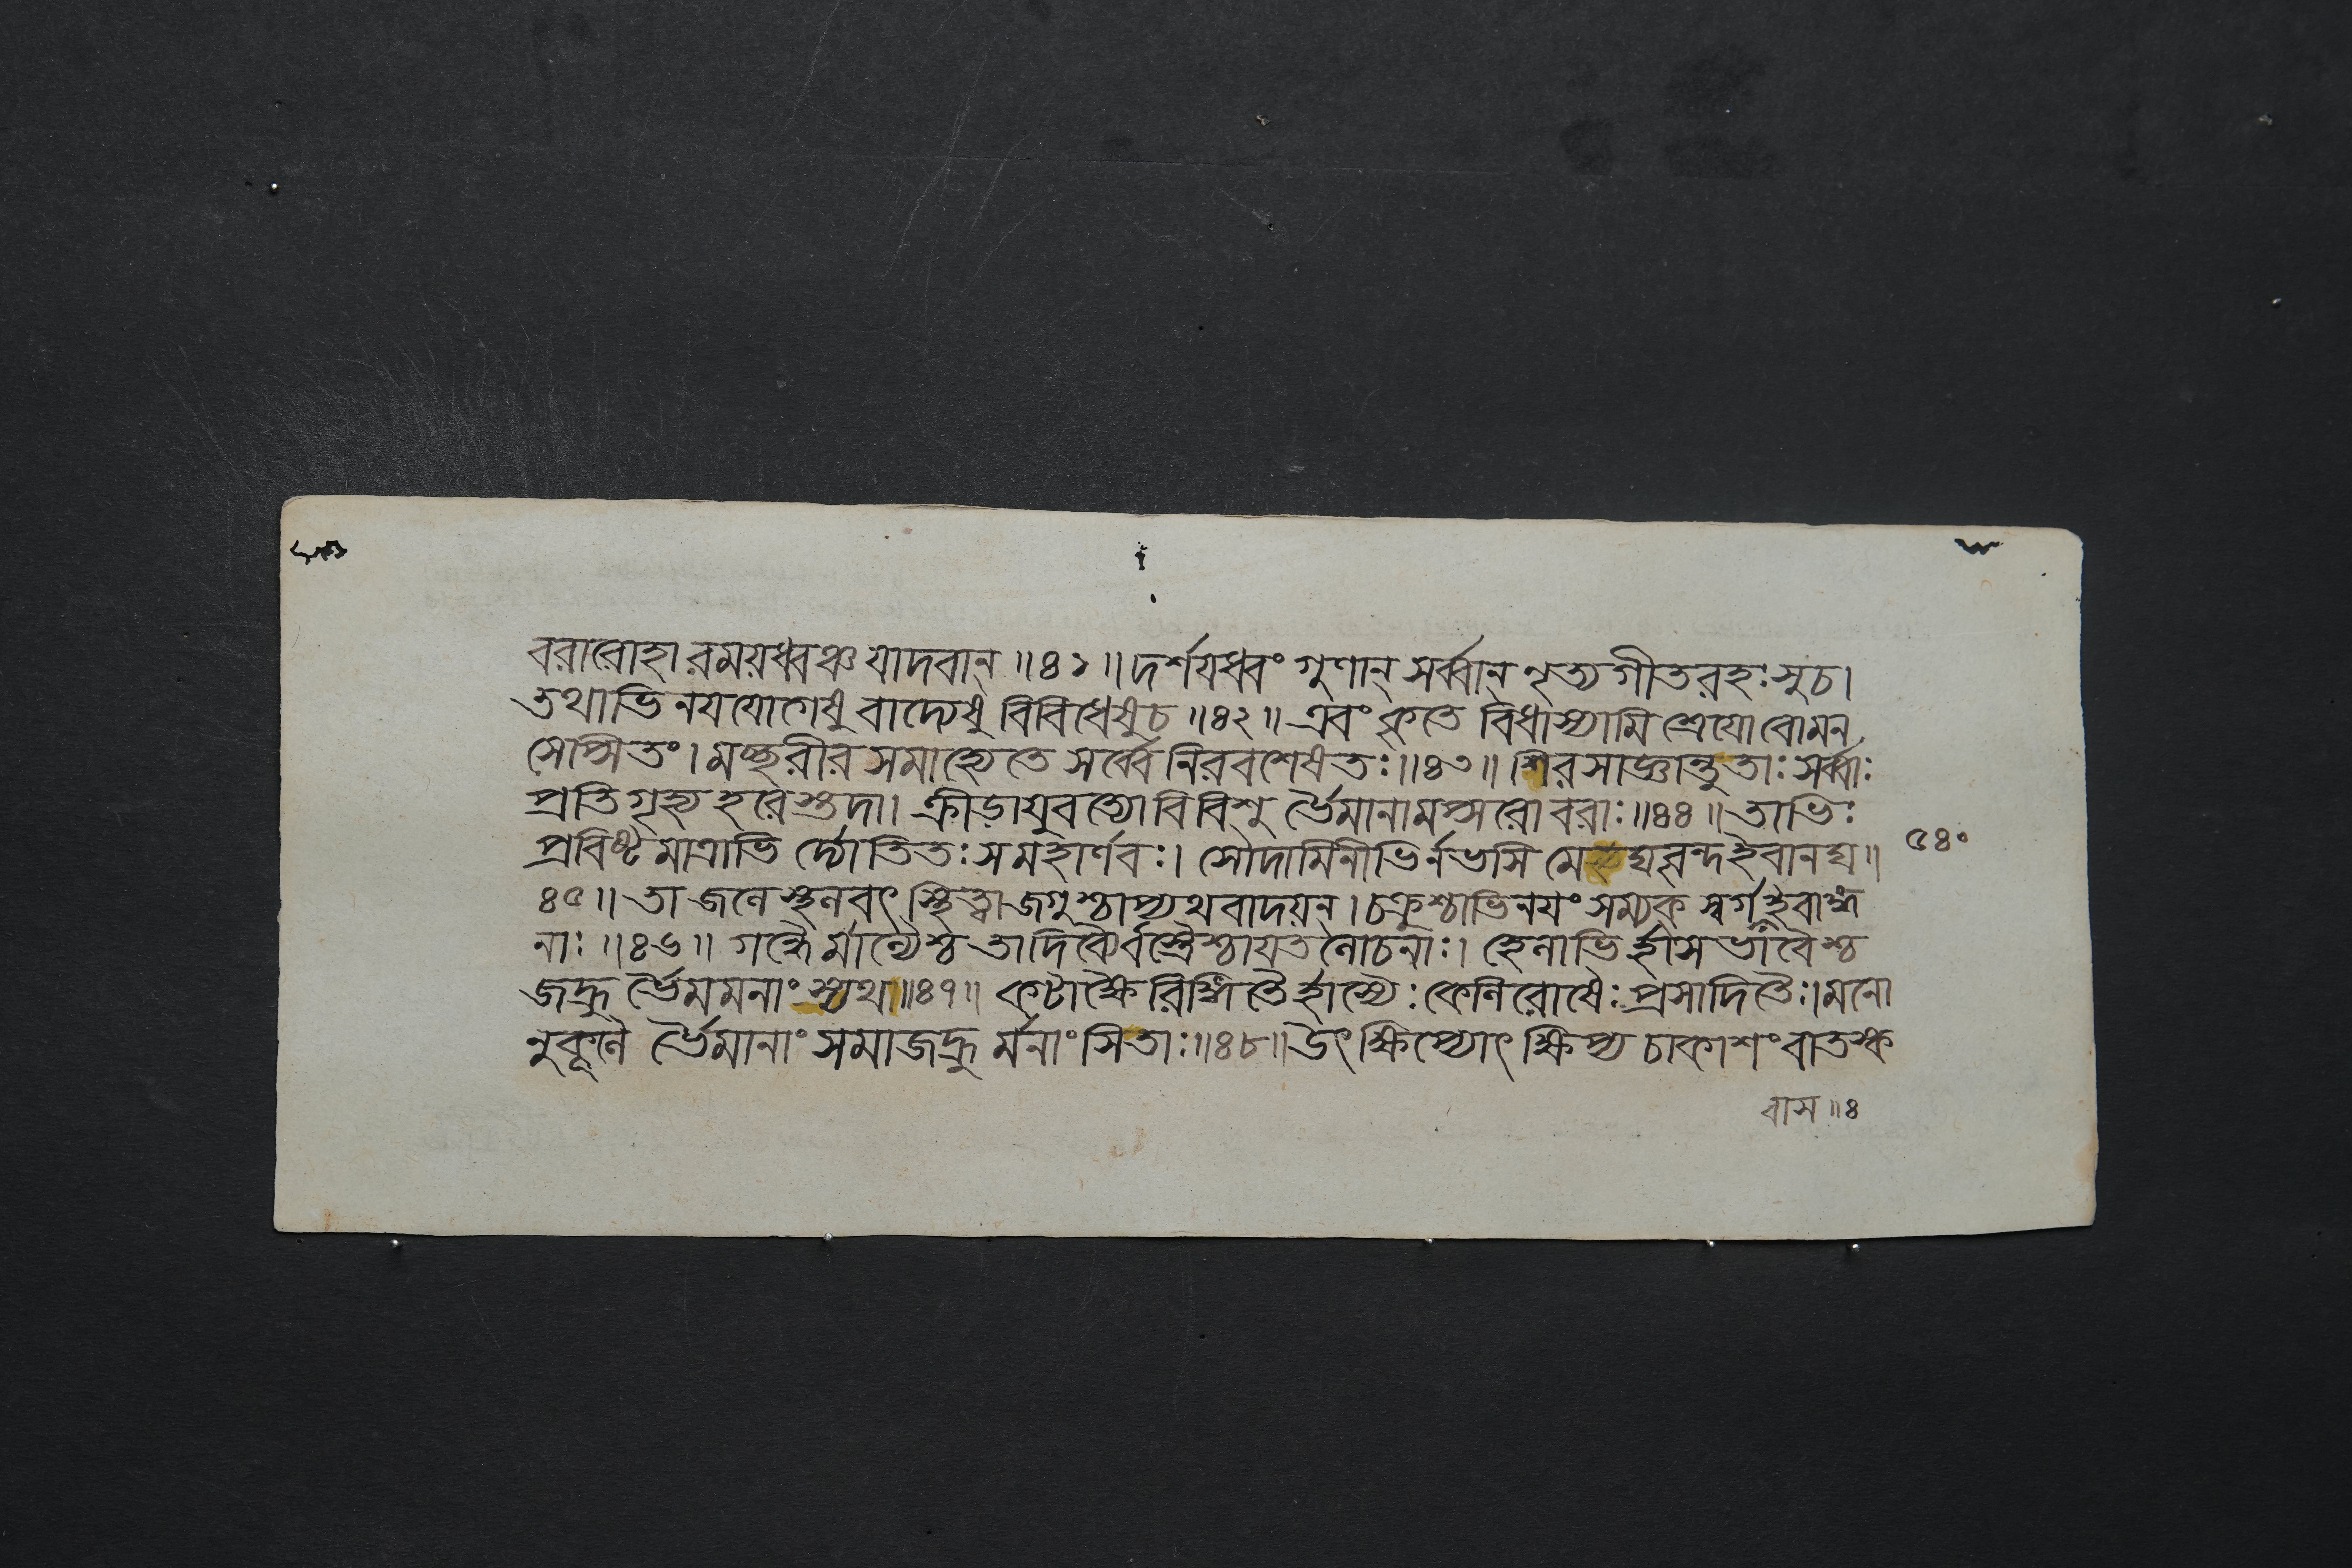 বরারোহা রময়ধ্বঞ্চ যাদবান্ ॥৪১॥ দর্শযধ্বং গুণান্ সর্ব্বান্ নৃত্যগীতরহঃসুচ।
তথাভিনযযোগেষু বাদ্যেষু বিবিধেষুচ ॥৪২॥ এবং কৃতে বিধাস্যামি শ্রেযোবোমন
সেপ্সিতং। মচ্ছরীরসমাহ্যেতে সর্ব্বে নিরবশেষতঃ॥৪৩॥ শিরসাজ্ঞান্তুতাঃ সর্ব্বাঃ
প্রতিগৃহ্য হরেস্তদা। ক্রীড়াযুবত্যোবিবিশু র্ভৈমানামপ্সরোবরাঃ॥৪৪॥ তাভিঃ
প্রবিষ্টমাত্রাভি র্দ্যোতিতঃ সমহার্ণবঃ। সৌদামিনীভির্নভসি মে ঘবৃন্দইবানঘ॥
৪৫॥ তা জলে স্থলবৎ স্থিত্বা জগুশ্চাপ্যথবাদয়ন্। চক্রুশ্চাভিনযং সম্যক স্বর্গইবাঙ্গ
নাঃ ॥৪৬॥ গন্ধৈর্মাল্যৈশ্চ তাদিব্যৈর্বস্ত্রৈশ্চাযতলোচনাঃ। হেলাভি র্হাসভাবৈশ্চ
জহ্রু র্ভৈমমনাংস্যথ॥৪৭॥ কটাক্ষৈরিঙ্গিতৈর্হাস্যৈঃ কেলিরোষৈঃ প্রসাদিতৈঃ। মনো
নুকূলৈ র্ভৈমানাং সমাজহ্রু র্মনাংসিতাঃ॥৪৮॥ উৎক্ষিপ্যোৎক্ষিপ্য চাকাশং বাতস্ক
৫৪০
বাস ॥৪